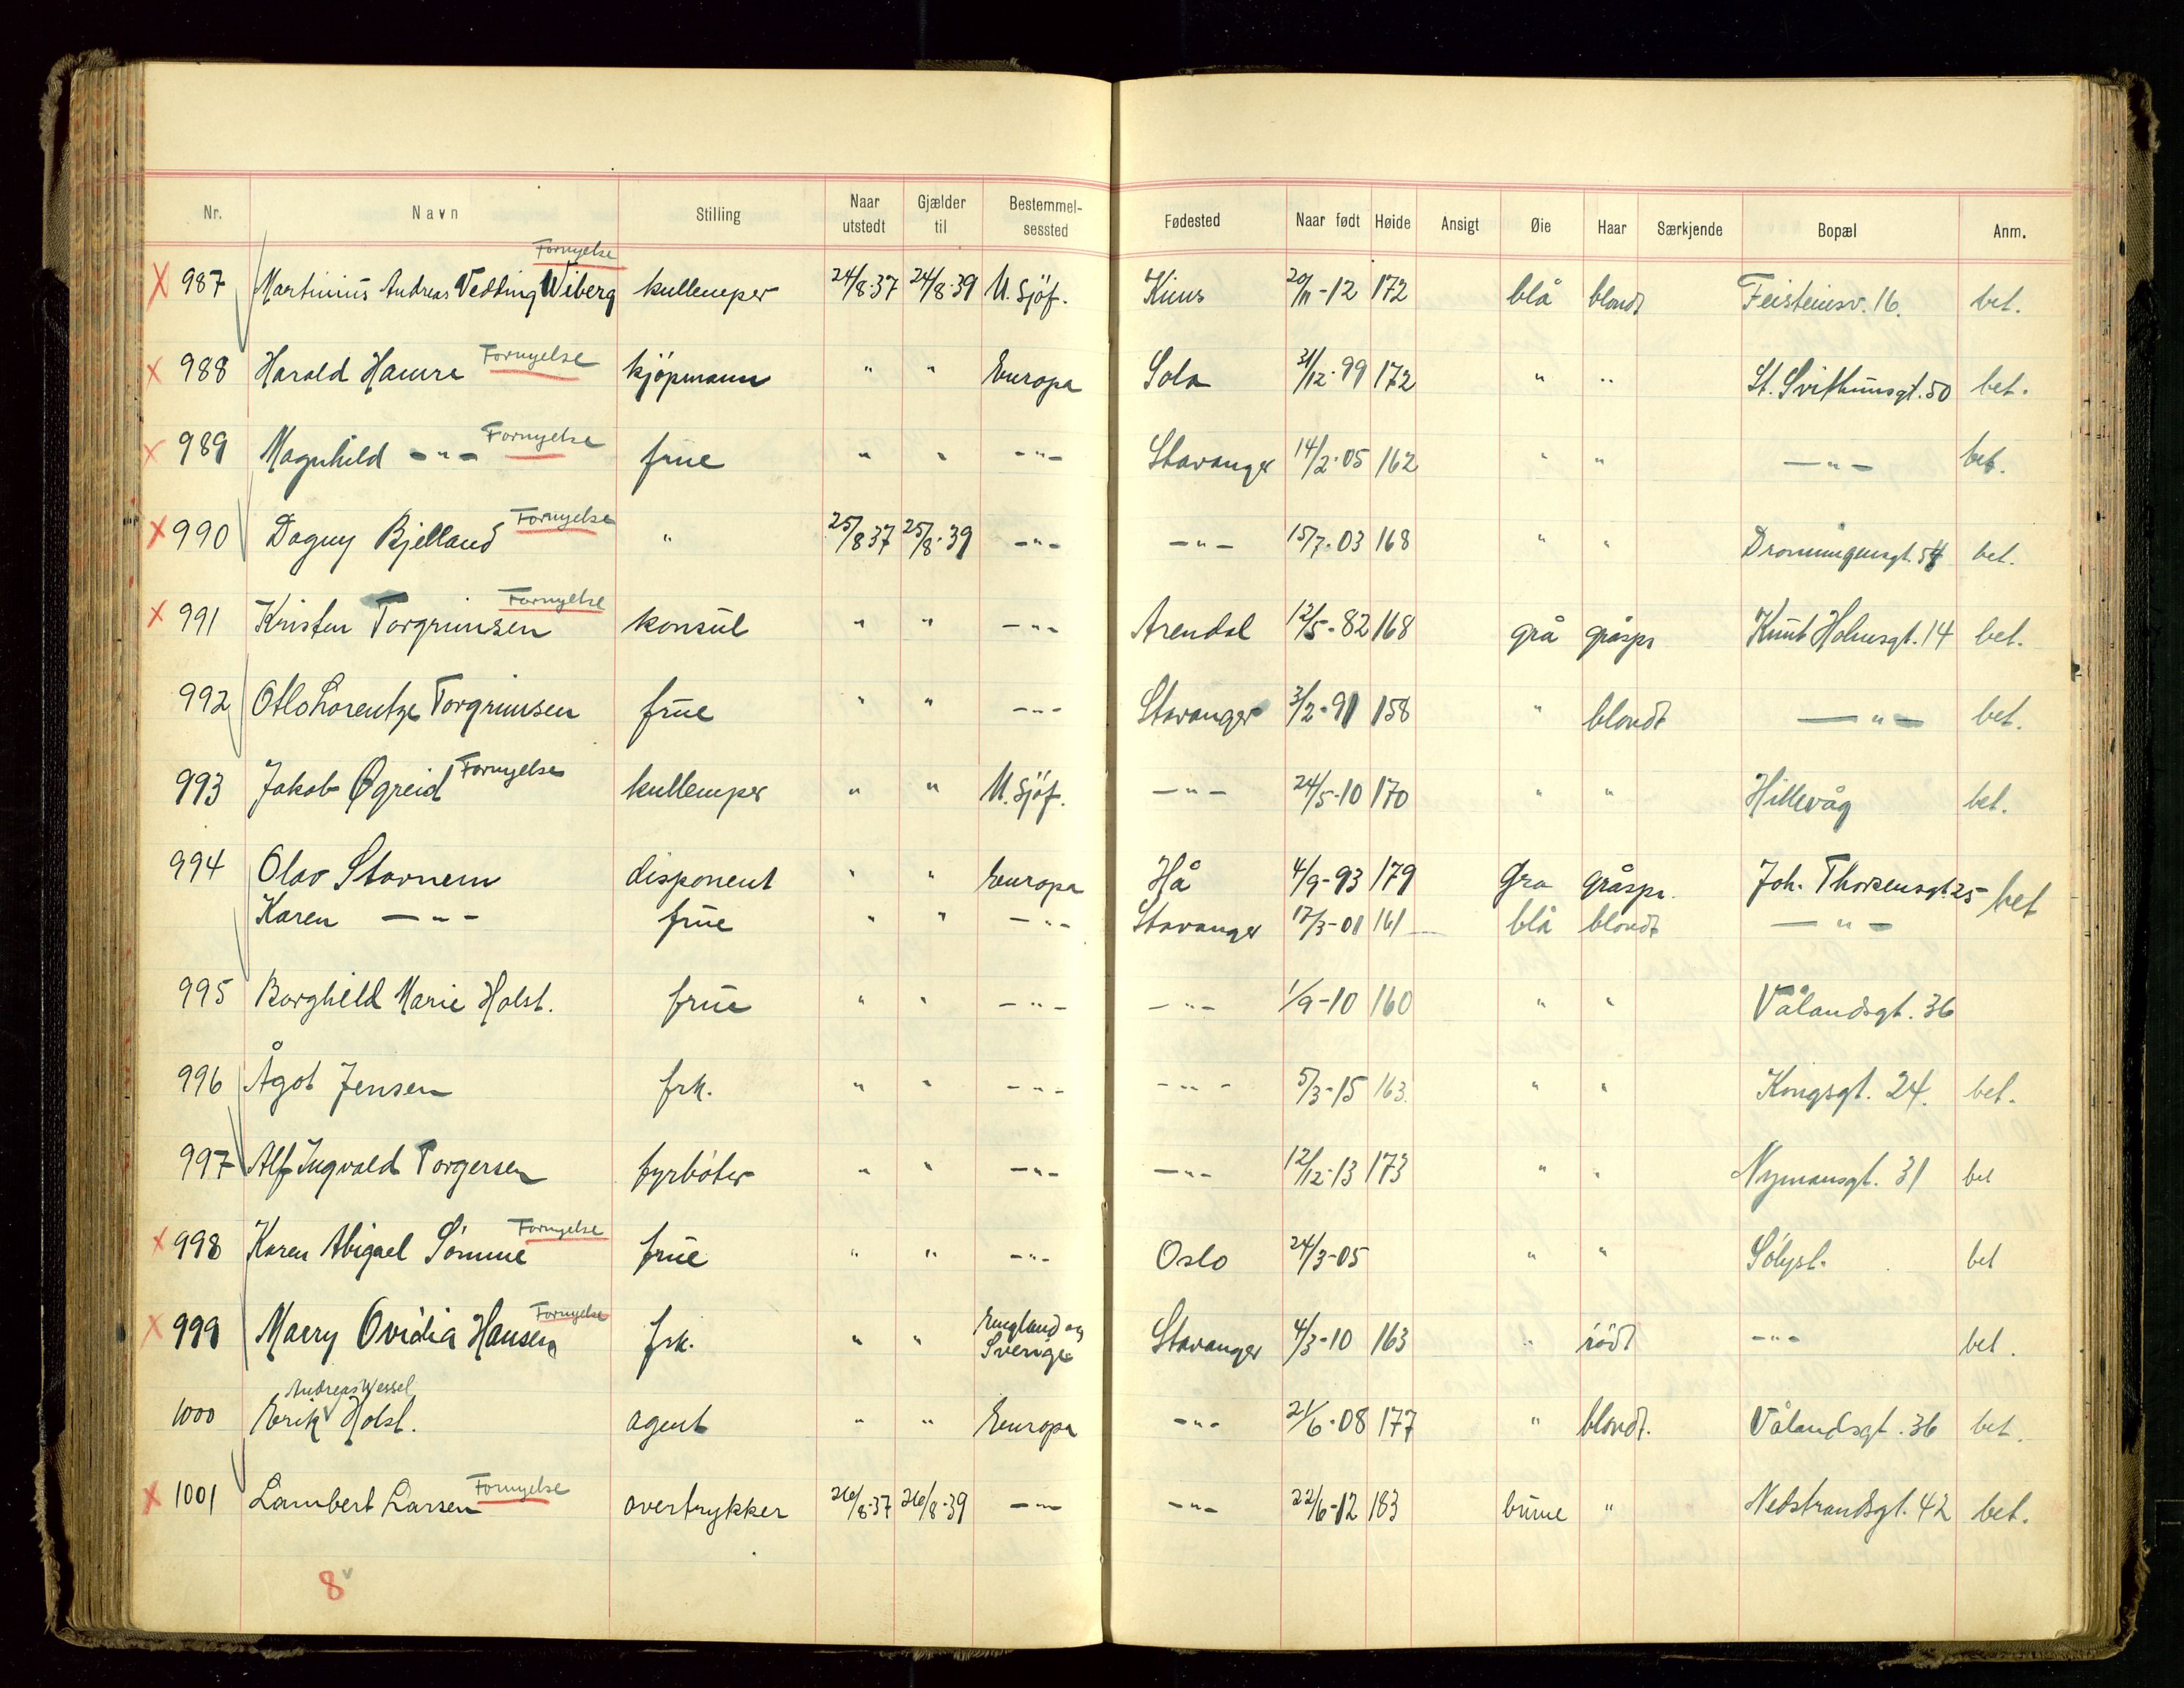 Nr. Navn Stilling Naar utstedt Gjælder til Bestemmel-sessted Fødested Naar født Høide Ansigt Øie Haar Særkjende Bopæl Anm.
Fornyelse
X 987 Martinius Andreas Vedding Wiberg kullemper 24/8-37 24/8-39 U. Sjöf. Kinns 20/11-12 172 blå blondt Feisteinsv. 16. bet.
X 988 Harald Hamre Fornyelse kjöpmann " " Europa Sola 31/12-99 172 " " St. Svithunsgt. 50 bet.
X 989 Magnhild - " - Fornyelse frue " " - " - Stavanger 14/2-05 162 " " - " - bet.
X 990 Dagny Bjelland Fornyelse " 25/8 37 25/8-39 - " - - " - 15/7-03 168 " " Dronningensgt. 54 bet.
X 991 Kristen Torgrimsen Fornyelse konsul " " - " - Arendal 12/5-82 168 grå gråspr Knut Holmsgt. 14 bet.
992 Lorentze Torgrimsen frue " " - " - Stavanger 3/2-91 158 " blondt - " - bet.
993 Jakob Øgreid Fornyelse kullemper " " U. Sjöf. - " - 24/5-10 170 " " Hillevåg bet.
994 Olav Stavnem disponent " " Europa Hå 4/9-93 179 Gra gråspr. Joh. Thorsensgt 25 bet
Karen - " - frue " " - " - Stavanger 17/3-01 161 blå blondt - " -
995 Borghild Marie Holst. frue " " - " - - " - 1/9-10 160 " " Vålandsgt. 36
996 Ågot Jensen frk. " " - " - - " - 5/3-15 163. " " Kongsgt. 24. bet.
997 Alf Ingvald Torgersen fyrböter " " - " - - " - 12/12-13 173 " " Nymansgt. 31 bet
X 998 Karen Abigael Sömme Fornyelse frue " " - " - Oslo 24/3-05 " " Sólyst. bet
X 999 Marry Ovidia Hansen Fornyelse frk. " " England og Sverige Stavanger 4/3-10 163 " rödt - " - bet.
Andreas Wessel
1000 Erik Holst. agent " " Europa - " - 21/6-08 177 " blondt. Vålandsgt. 36 bet.
X 1001 Lambert Larsen Fornyelse overtrykker 26/8-37 26/8-39 - " - - " - 22/6-12 183 brune " Nedstrandsgt. 42 bet.
8